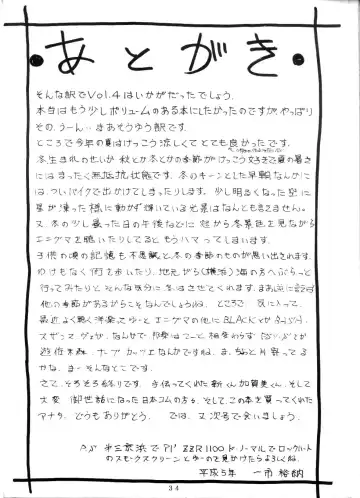 ・あとがき・
そんな訳でVol.4はいかがだったでしょう。
本当はもう少しボリュームのある本にしたかったのですが、やっぱり
その、うーん…まあそうゆう訳です。
ところで今年の夏はけっこう涼しくてとても良かったです。
冬生まれのせいか秋とか冬とかの季節がけっこう好きで夏の暑さ
にはまったく無抵抗状態です。冬のキーンとした早朝なんかに
は、ついバイクで出かけてしまったりします。少し明るくなった空に
星が凍った様に動かず輝いている光景はなんとも言えません。
又、冬の少し曇った日の午後などに 窓から冬景色を見ながら
エニグマを聴いたりしてるともうハマってしまいます。
子供の頃の記憶も不思議と冬の季節のものが思い出されます。
わけもなく街を歩いたり、地元がら(横浜)海の方へぶらっと
行ってみたりとそんな気分に冬はさせてくれます。まあ
他の季節があるからこそなんでしょうね。ところで
最近よく聴く洋楽というとエニグマの他にBLACKとか
スザンヌ・ヴェガ、なんかで 邦楽はっと相変わらず
遊佐未森、ナーブ カッツェなんかですね。ま、ちょっと片寄ってる
かな。まーそんなとこです。
さて、そろそろ終りです。手伝ってくれた新くん 加賀美くん、そして
大変 御世話になった日本コムのみな、そして、この本を買ってくれた
アナタ、どうもありがとう。 では、又次号で会いましょう。
P.S 第三京浜で ZZR1100 ノーマルでロックハート
のスモークスクリーンとゆーので見かけたらよろしくね。
平成5年 一市 裕納
34